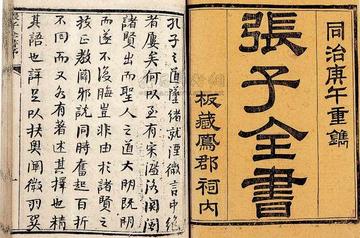 同治庚午重鐫
張子全書
板藏鳳郡祠内
孔子之道墜緒就湮微言中絕
者屢矣何以至有宋濂洛關閩
諸賢出而聖人之道大明既明
而遂不復晦豈非由於諸賢之
扶正教闢邪説同時奮起百折
不回而又各有著述其擇也精
其語也詳足以闡微羽翼